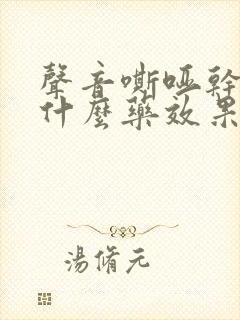 聲音嘶啞幹
什麼藥效果
湯脩元